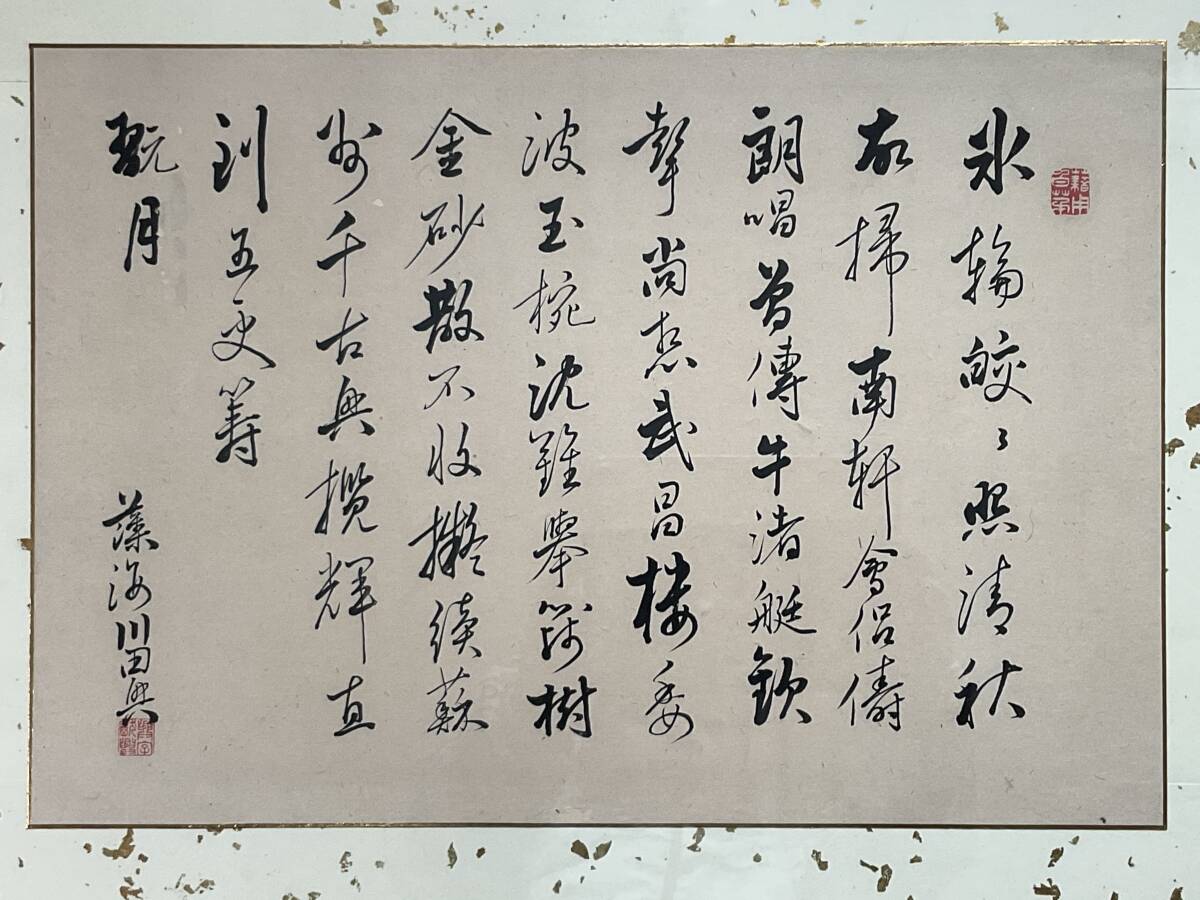 氷輪皎〻照清秋
故掃南軒會侶儔
朗唱曾傳牛渚艇欽
聲尚想武昌樓委
波玉椀沈難舉篩樹
金砂散不收擬續蘇
州千古興攬輝直
到五更籌
翫月
藻海川田興